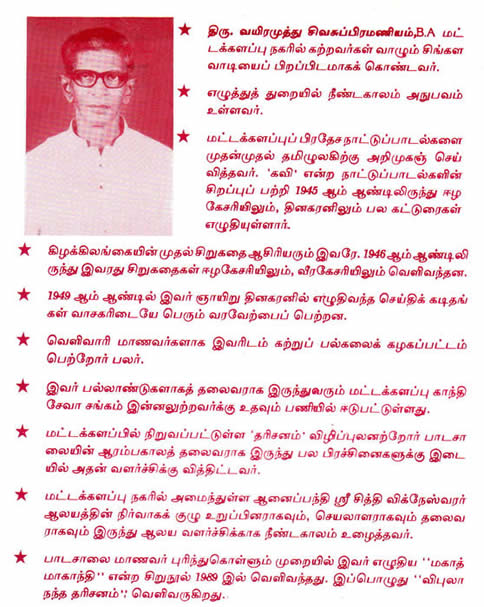 ★ திரு. வயிரமுத்து சிவசுப்பிரமணியம்,B.A மட்
டக்களப்பு நகரில் கற்றவர்கள் வாழும் சிங்கள
வாடியைப் பிறப்பிடமாகக் கொண்டவர்.
★ எழுத்துத் துறையில் நீண்டகாலம் அநுபவம்
உள்ளவர்.
★ மட்டக்களப்புப் பிரதேச நாட்டுப்பாடல்களை
முதன்முதல் தமிழுலகிற்கு அறிமுகஞ் செய்
வித்தவர். 'கவி' என்ற நாட்டுப்பாடல்களின்
சிறப்புப் பற்றி 1945 ஆம் ஆண்டிலிருந்து ஈழ
கேசரியிலும், தினகரனிலும் பல கட்டுரைகள்
எழுதியுள்ளார்.
★ கிழக்கிலங்கையின் முதல் சிறுகதை ஆசிரியரும் இவரே. 1946 ஆம் ஆண்டிலி
ருந்து இவரது சிறுகதைகள் ஈழகேசரியிலும், வீரகேசரியிலும் வெளிவந்தன.
★ 1949 ஆம் ஆண்டில் இவர் ஞாயிறு தினகரனில் எழுதிவந்த செய்திக் கடிதங்
கள் வாசகரிடையே பெரும் வரவேற்பைப் பெற்றன.
★ வெளிவாரி மாணவர்களாக இவரிடம் கற்றுப் பல்கலைக் கழகப்பட்டம்
பெற்றோர் பலர்.
★ இவர் பல்லாண்டுகளாகத் தலைவராக இருந்துவரும் மட்டக்களப்பு காந்தி
சேவா சங்கம் இன்னலுற்றவர்க்கு உதவும் பணியில் ஈடுபட்டுள்ளது.
★ மட்டக்களப்பில் நிறுவப்பட்டுள்ள 'தரிசனம்' விழிப்புலனற்றோர் பாடசா
லையின் ஆரம்பகாலத் தலைவராக இருந்து பல பிரச்சினைகளுக்கு இடை
யில் அதன் வளர்ச்சிக்கு வித்திட்டவர்.
★ மட்டக்களப்பு நகரில் அமைந்துள்ள ஆனைப்பந்தி ஸ்ரீ சித்தி விக்நேஸ்வரர்
ஆலயத்தின் நிர்வாகக் குழு உறுப்பினராகவும், செயலாளராகவும் தலைவ
ராகவும் இருந்து ஆலய வளர்ச்சிக்காக நீண்டகாலம் உழைத்தவர்.
★ பாடசாலை மாணவர் புரிந்துகொள்ளும் முறையில் இவர் எழுதிய ''மகாத்
மாகாந்தி'' என்ற சிறுநூல் 1989 இல் வெளிவந்தது. இப்பொழுது ''விபுலா
நந்த தரிசனம்'' வெளிவருகிறது.